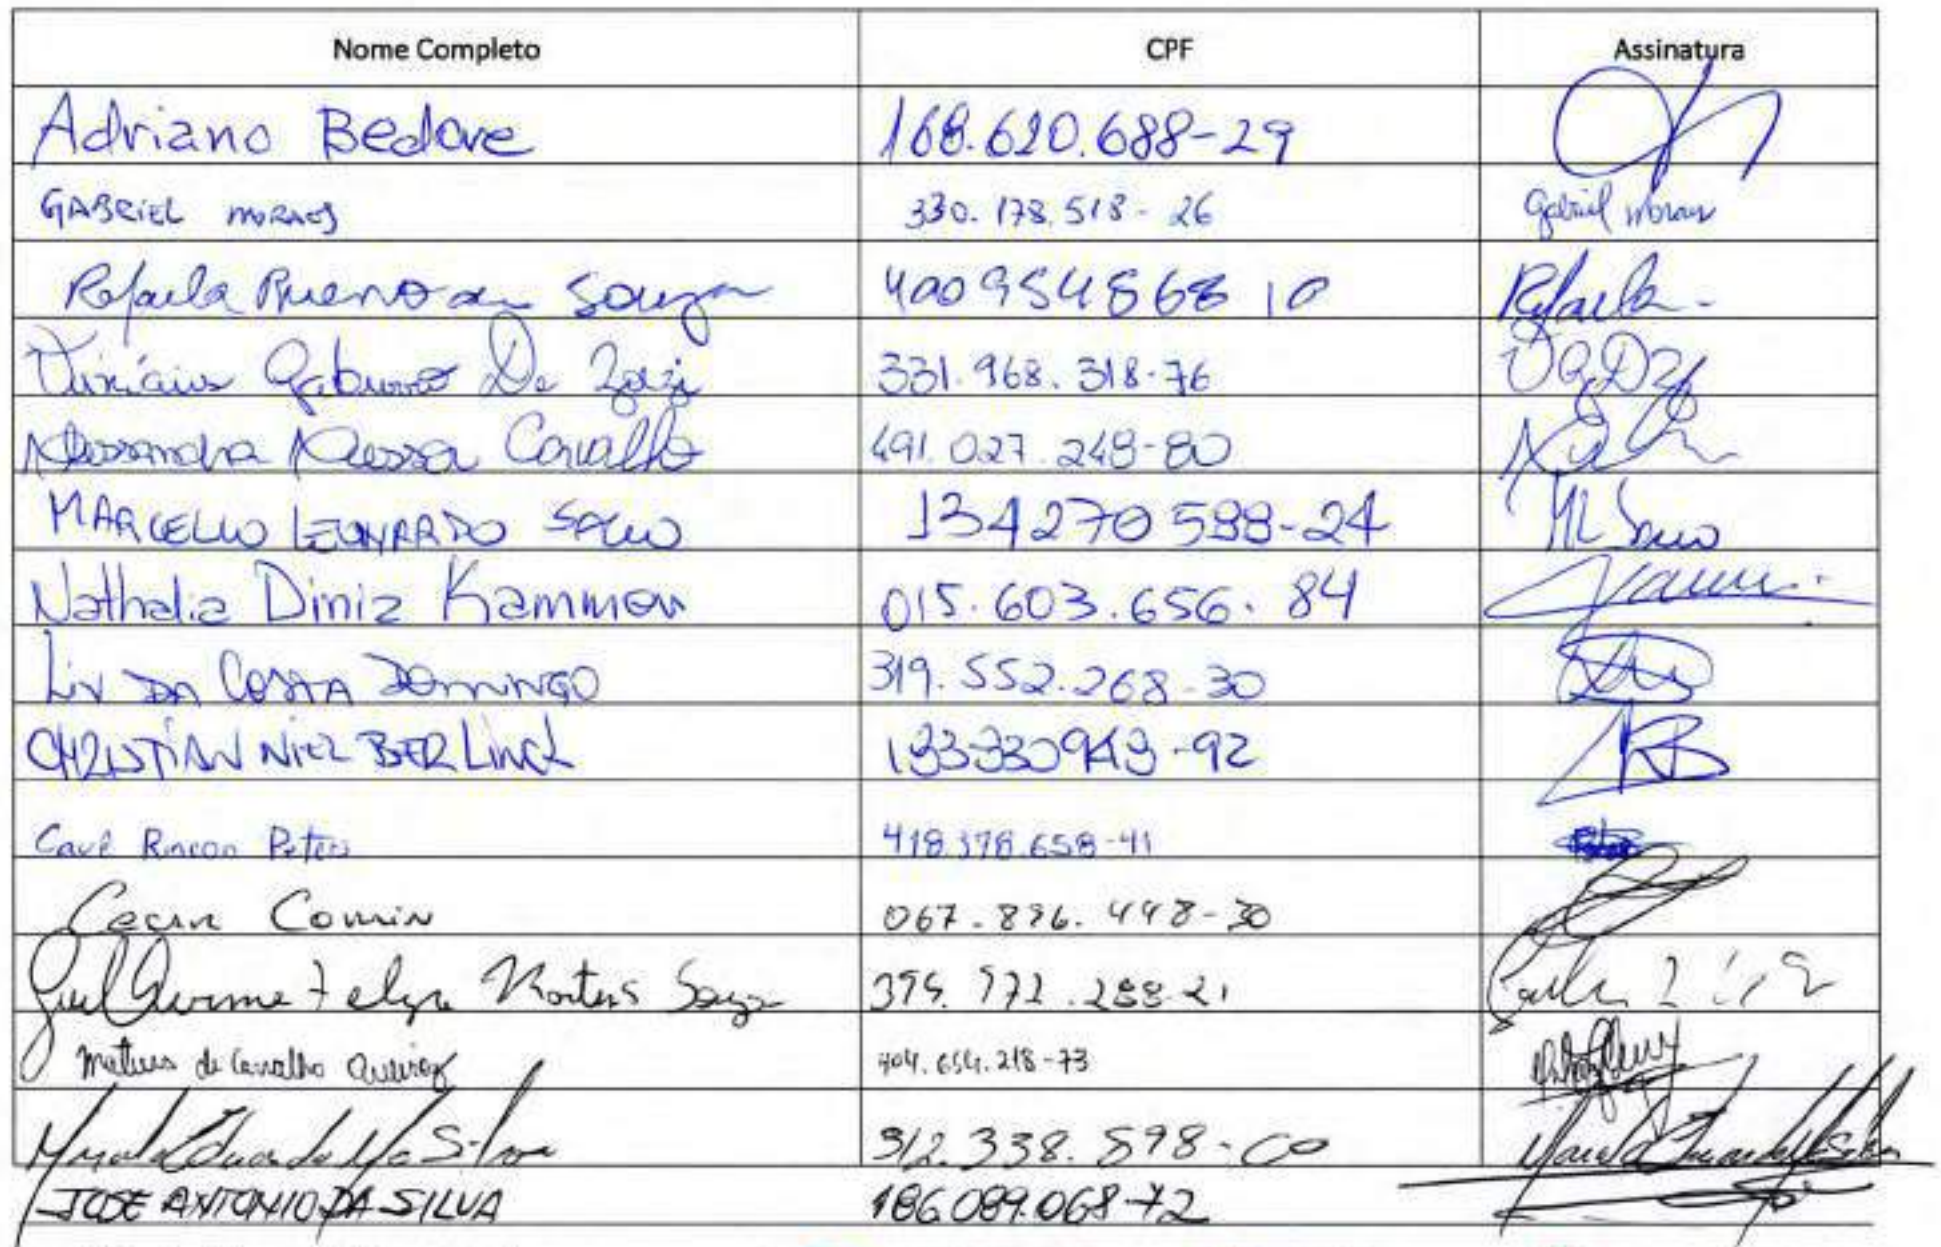 Nome Completo CPF Assinatura
Adriano Bedore 168.620.688-29
GABRIEL MORAES 330.178.518-26 Gabriel Moraes
Rafaela Bueno de Souza 400954868 10 Rafaela
Vinícius Gaburro De Zorzi 331.968.318-76 VGDZ
Alessandra Alessa Carvalho 491.027.248-80
MARCELLO LEONARDO 134270588-24 ML
Nathalia Diniz Kammon 015.603.656.84
LIV DA COSTA DOMINGO 319.552.268-30
CHRISTIAN NIEL BERLINCK 133330943-92
Cauê Rincon Peters 418.378.658-41
Cesar Comin 067.896.448-30
Guilherme Felype Martins Souza
Matheus de Carvalho Queiroz 404.654.218-73
Eduardo da Silva 312.338.598-00
JOSE ANTONIO DA SILVA 186.089.068-72